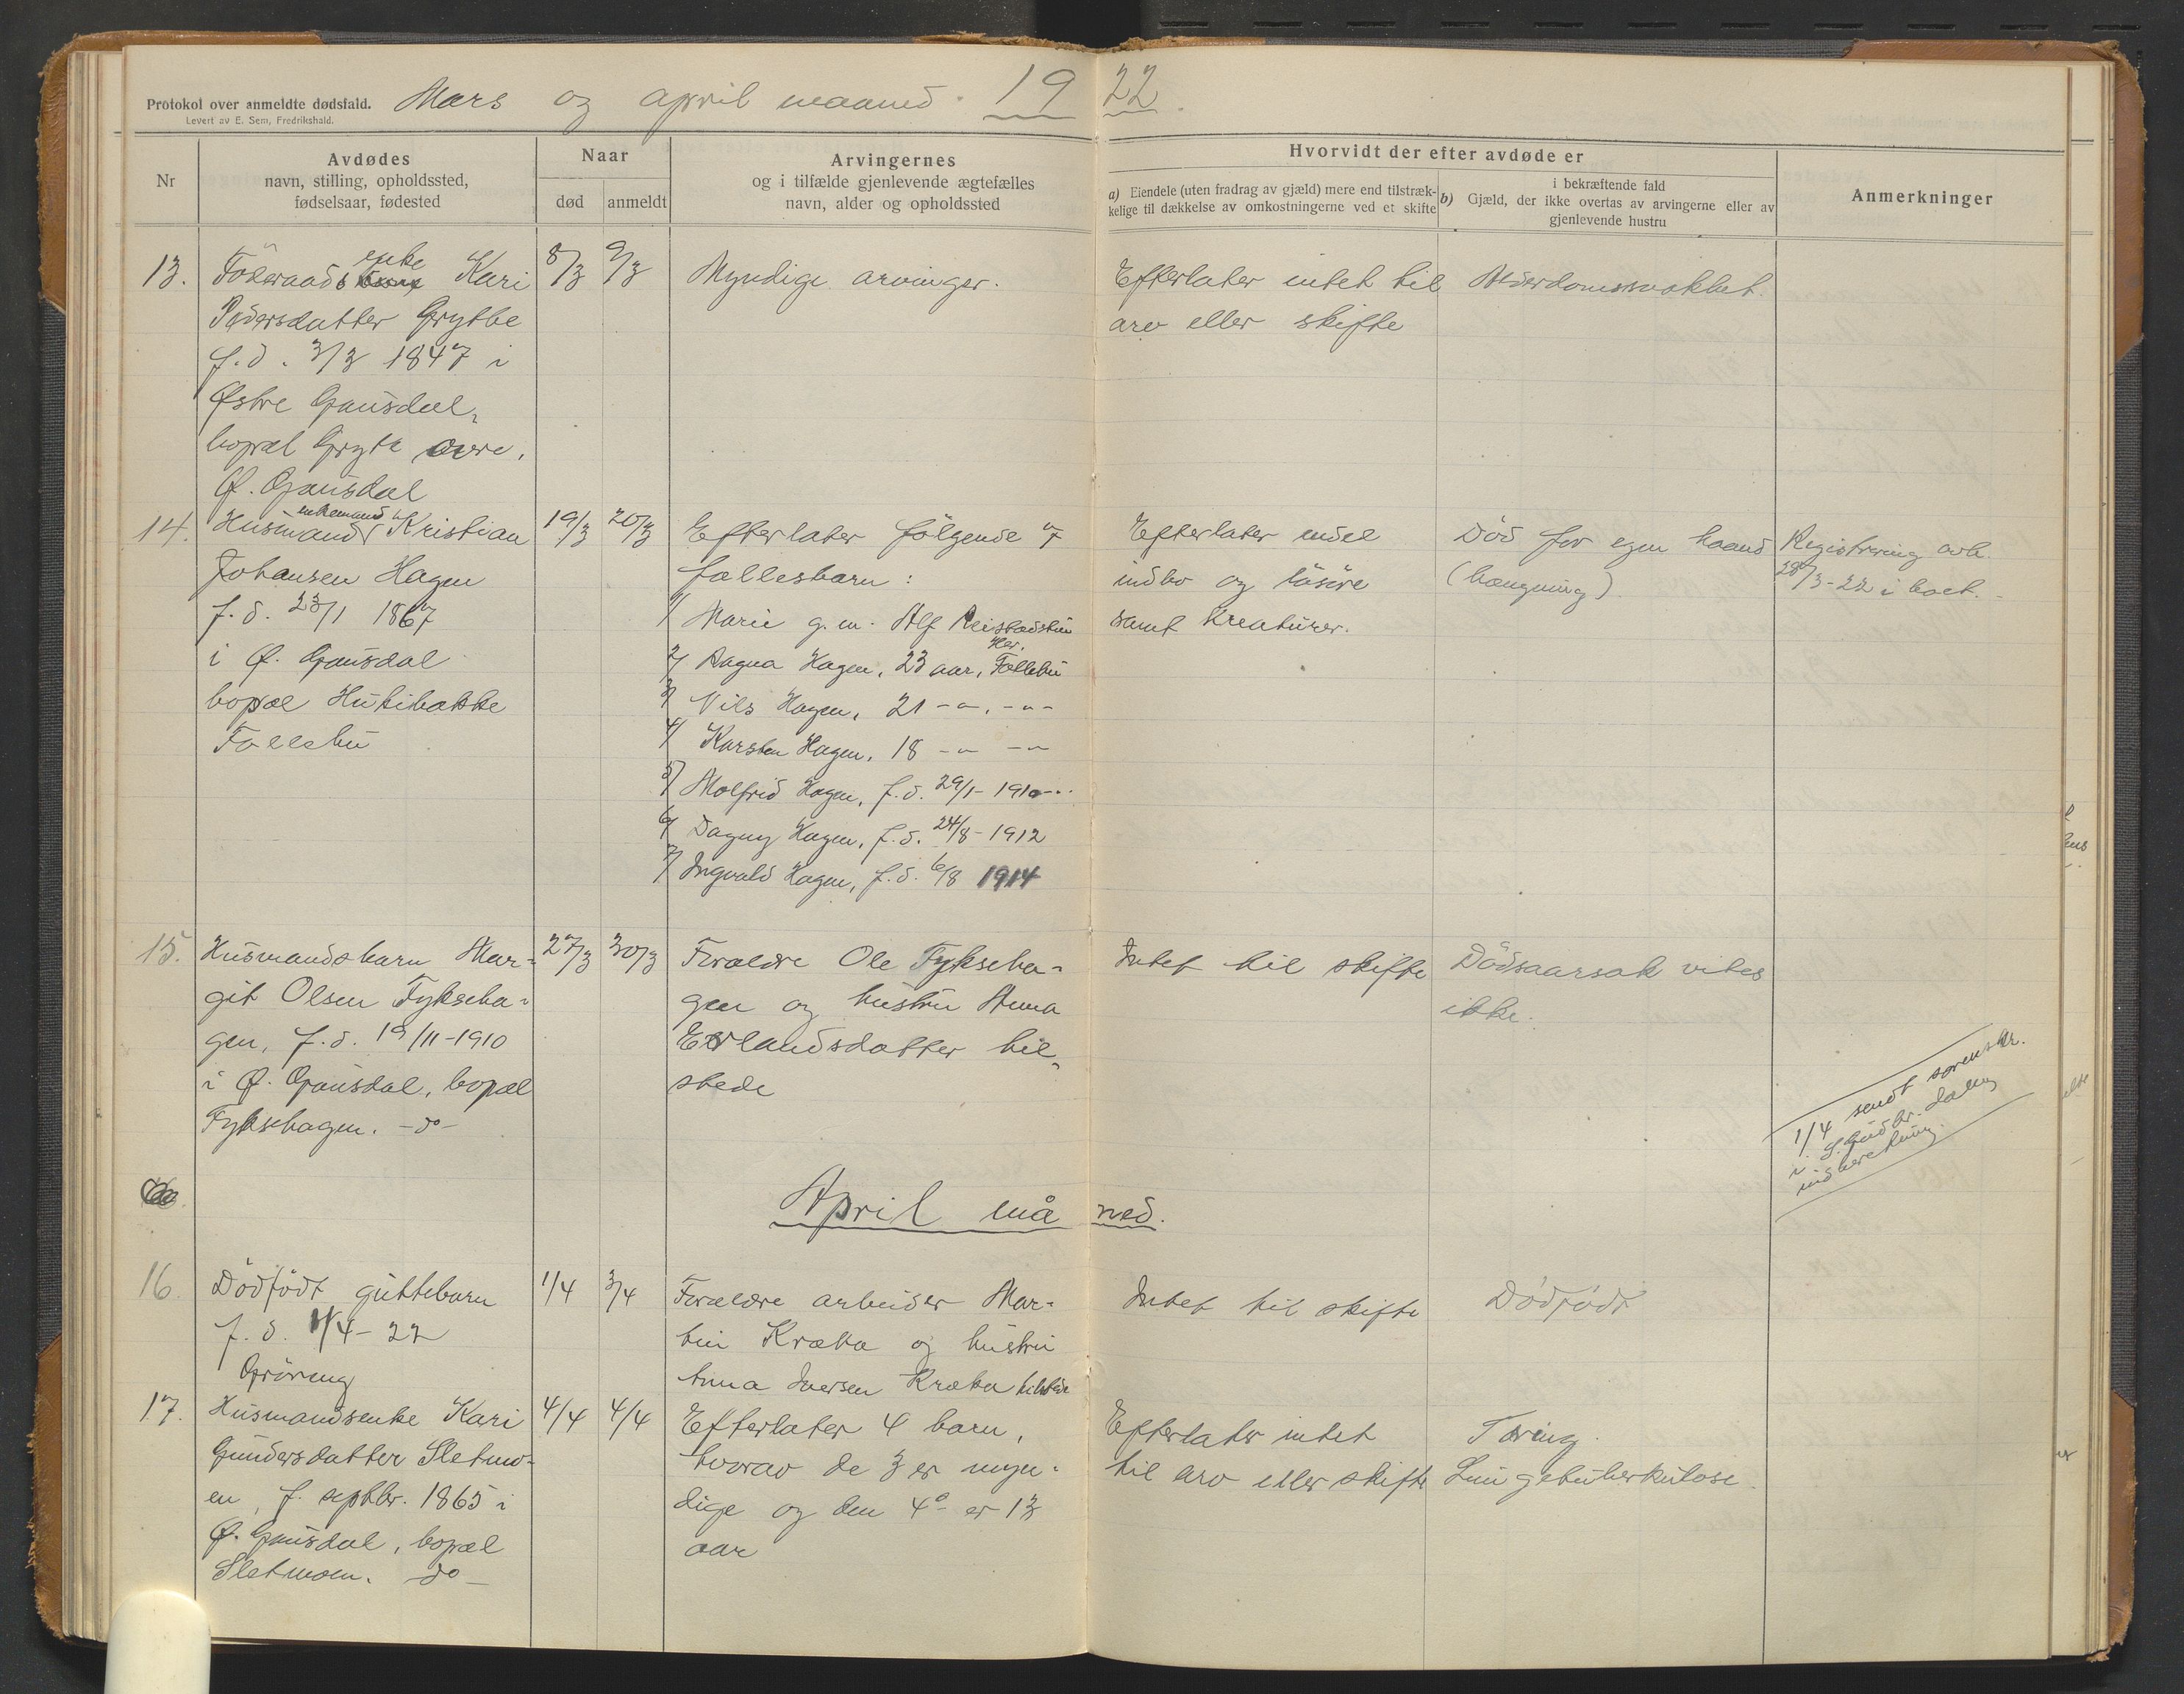 Protokol over anmeldte dødsfald. Mars og april maaned. 19 22.
Levert av E. Sem, Fredrikshald.
Nr
Avdødes
navn, stilling, opholdssted,
fødselsaar, fødested
Naar
død
anmeldt
Arvingernes
og i tilfælde gjenlevende ægtefælles
navn, alder og opholdssted
Hvorvidt der efter avdøde er
a) Eiendele (uten fradrag av gjæld) mere end tilstræk-
kelige til dækkelse av omkostningerne ved et skifte
b) i bekræftende fald
Gjæld, der ikke overtas av arvingerne eller av
gjenlevende hustru
Anmerkninger
13.
Föderaads enke Kari
Pedersdatter Grytbe
f.d. 3/3 1847 i
Østre Gausdal,
bopæl Grytt øvre,
Ø. Gausdal
8/3
9/3
Myndige arvinger.
Efterlater intet til
arv eller skifte
Alderdomssvakhet.
14.
Husmand enkemand Kristian
Johansen Hagen
f.d. 23/1 1867
i Ø. Gausdal
bopæl Hutibakke
Follebu
19/3
20/3
Efterlater fölgende 7
fællesbarn:
1/ Marie g.m. Alf Reistadstuen
her.
2/ Ragna Hagen, 23 aar, Follebu
3/ Nils Hagen, 21 -"- -"-
4/ Karsten Hagen, 18 -"- -"-
5/ Molfrid Hagen, f.d. 29/1- 1910 -"-
6/ Dagny Hagen, f.d. 24/8- 1912
7/ Ingvald Hagen, f.d. 6/8 1914
Efterlater endel
indbo og lösöre
samt kreaturer.
Död for egen haand
(hængning).
Registrering avh.
28/3-22 i boet.
15.
Husmandsbarn Mar-
git Olsen Fykseha-
gen, f.d. 19/11-1910
i Ø. Gausdal, bopæl
Fyksehagen. -do-
27/3
30/3
Forældre Ole Fykseha-
gen og hustru Anna
Erlandsdatter til-
stede
Intet til skifte
Dödsaarsak vites
ikke.
1/4 sendt sorenskr.
i S. Gudbr. dalen
indberetning.
April må ned.
16.
Dödfödt guttebarn
f.d. 1/4-22
Gröneng
1/4
3/4
Forældre arbeider Mar-
tin Kræka og hustru
Anna Iversen Kræka tilstede
Intet til skifte
Dödfödt
17.
Husmandsenke Kari
Gundersdatter Sletmo-
en, f. septbr. 1865 i
Ø. Gausdal, bopæl
Sletmoen. -do-
4/4
4/4
Efterlater 4 barn,
hvorav de 3 er myn-
dige og den 4de er 13
aar
Efterlater intet
til arv eller skifte
Tæring.
Lungetuberkulose.